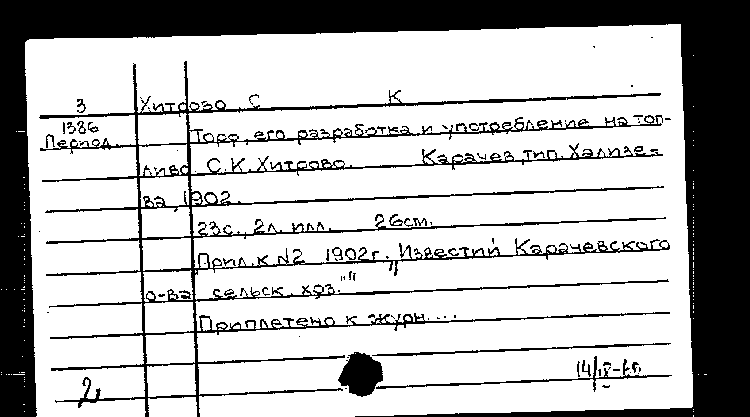 3 Хитрово, С К
1386
Период. Торф, его разработка и употребление на топ-
ливо С.К. Хитрово. Карачев, тип. Хализе=
ва, 1902.
23с., 2л. илл. 26см.
Прил. к N2 1902г. "Известий Карачевского
о-ва сельск. хоз."
Приплетено к журн....
2 14/IX-60